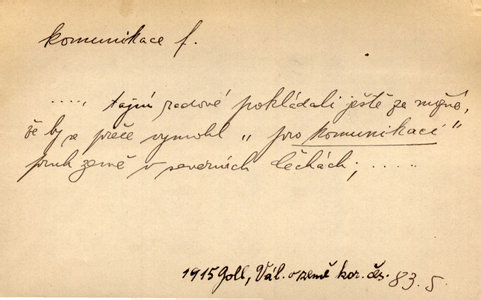 komunikace f.
...., tajní radové pokládali ještě za možné,
že by se přece vymohl „pro komunikaci"
pruh země v severních Čechách; .....
1915 Goll, Vál. o země kor. čes. 83.5